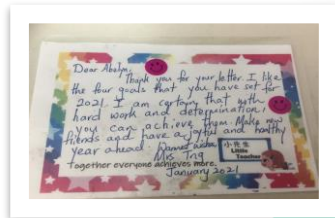 Dear Abelyn,
Thank you for your letter. I like
the four goals that you have set for
2021. I am certain that with
hard work and determination,
you can achieve them. Make new
friends and have a joyful and healthy
year ahead.
小先生
Little
Teacher
Mrs Tng
Together everyone achieves more.
January 2021